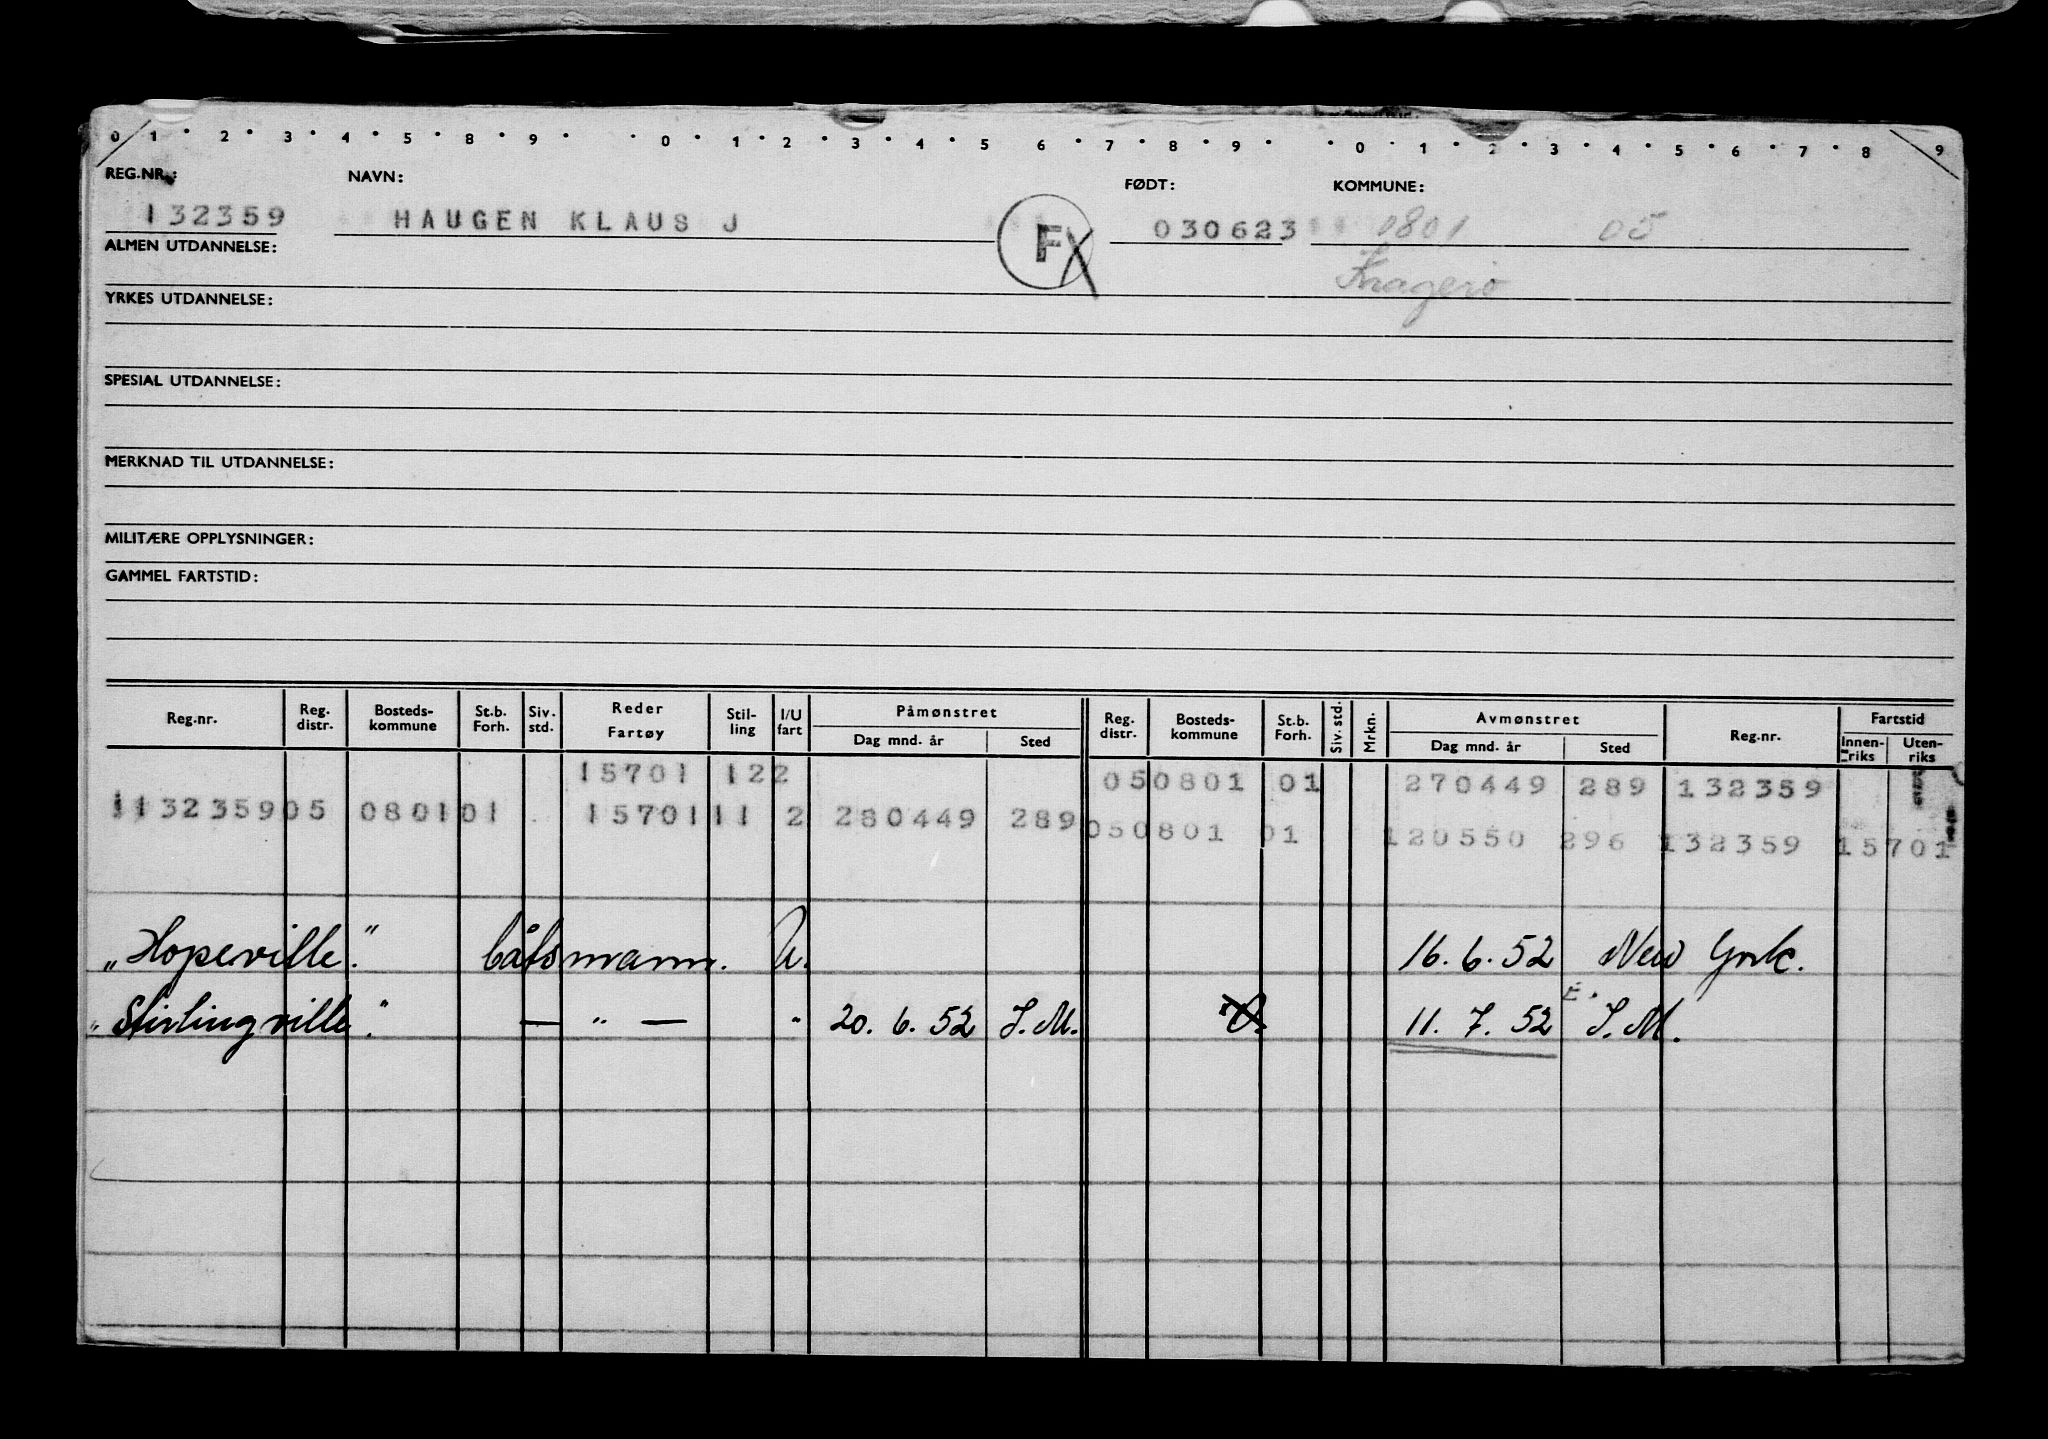 0 1 2 3 4 5 8 9 0 1 2 3 4 5 6 7 8 9 0 1 2 3 4 5 6 7 8 9
REG.NR.: NAVN: FØDT: KOMMUNE:
132359 HAUGEN KLAUS J F 030623 0801 05
ALMEN UTDANNELSE:
Kragerø
YRKES UTDANNELSE:
SPESIAL UTDANNELSE:
MERKNAD TIL UTDANNELSE:
MILITÆRE OPPLYSNINGER:
GAMMEL FARTSTID:
Reg.nr. Reg. distr. Bosteds-kommune St.b. Forh. Siv. std. Reder Fartøy Stil-ling I/U fart Påmønstret Dag mnd. år Sted Reg. distr. Bosteds-kommune St.b. Forh. Siv. std. Mrkn. Avmønstret Dag mnd. år Sted Reg.nr. Fartstid Innen-riks Uten-riks
15701 122 050801 01 270449 289 132359
113235905 080101 15701 11 2 280449 289 050801 01 120550 296 132359 15701
„Hopeville." båtsmann. U. 16.6.52 New York.
„Stirlingville". — " — " 20.6.52 J.M. 11.7.52 J.M.